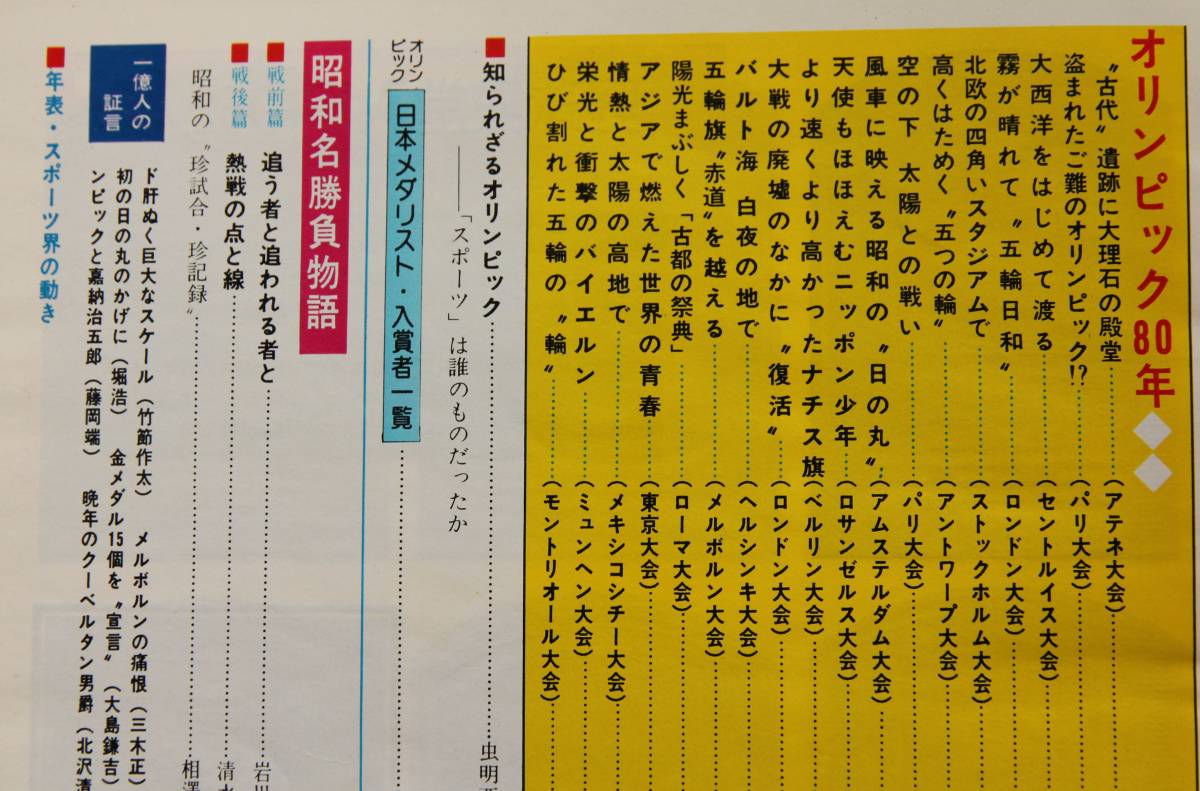 オリンピック80年
〝古代〟遺跡に大理石の殿堂……(アテネ大会)……
盗まれたご難のオリンピック!?……(パリ大会)……
大西洋をはじめて渡る……(セントルイス大会)……
霧が晴れて〝五輪日和〟……(ロンドン大会)……
北欧の四角いスタジアムで……(ストックホルム大会)……
高くはためく〝五つの輪〟……(アントワープ大会)……
空の下 太陽との戦い……(パリ大会)……
風車に映える昭和の〝日の丸〟……(アムステルダム大会)……
天使もほほえむニッポン少年……(ロサンゼルス大会)……
より速くより高かったナチス旗(ベルリン大会)……
大戦の廃墟のなかに〝復活〟……(ロンドン大会)……
バルト海 白夜の地で……(ヘルシンキ大会)……
五輪旗〝赤道〟を越える……(メルボルン大会)……
陽光まぶしく「古都の祭典」……(ローマ大会)……
アジアで燃えた世界の青春……(東京大会)……
情熱と太陽の高地で……(メキシコシチー大会)……
栄光と衝撃のバイエルン……(ミュンヘン大会)……
ひび割れた五輪の〝輪〟……(モントリオール大会)……
■知られざるオリンピック……虫明
——「スポーツ」は誰のものだったか
オリンピック 日本メダリスト・入賞者一覧……
昭和名勝負物語
■戦前篇 追う者と追われる者と……岩川
■戦後篇 熱戦の点と線……清水
昭和の〝珍試合・珍記録〟……相澤
一億人の証言
ド肝ぬく巨大なスケール(竹節作太) メルボルンの痛恨(三木正)
初の日の丸のかげに(堀浩) 金メダル15個を〝宣言〟(大島鎌吉)
ンピックと嘉納治五郎(藤岡端) 晩年のクーベルタン男爵(北沢清
■年表・スポーツ界の動き